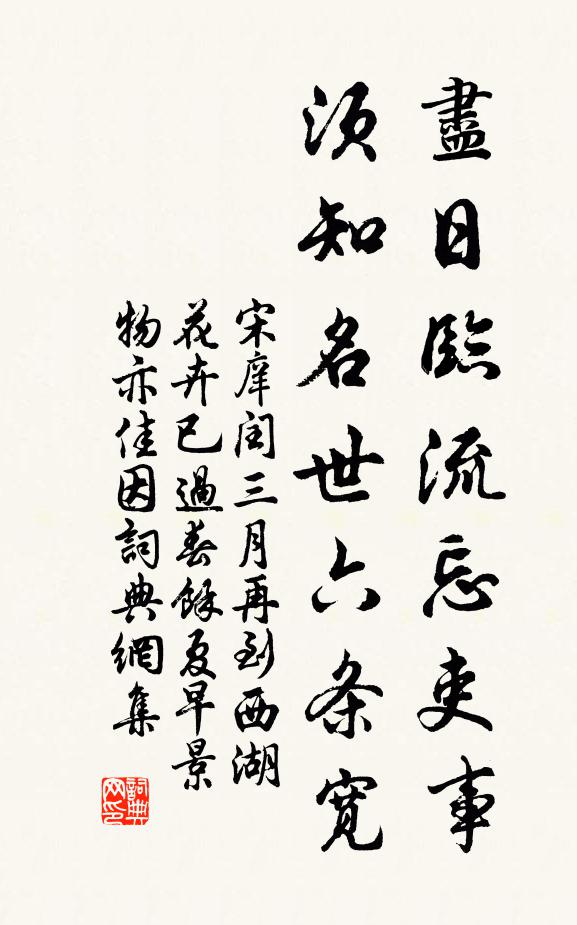 盡日臨流忘吏事
須知名世六条寬
宋庠閏三月再到西湖
花卉已過春餘夏早景
物亦佳因詞典網集
詞典网印